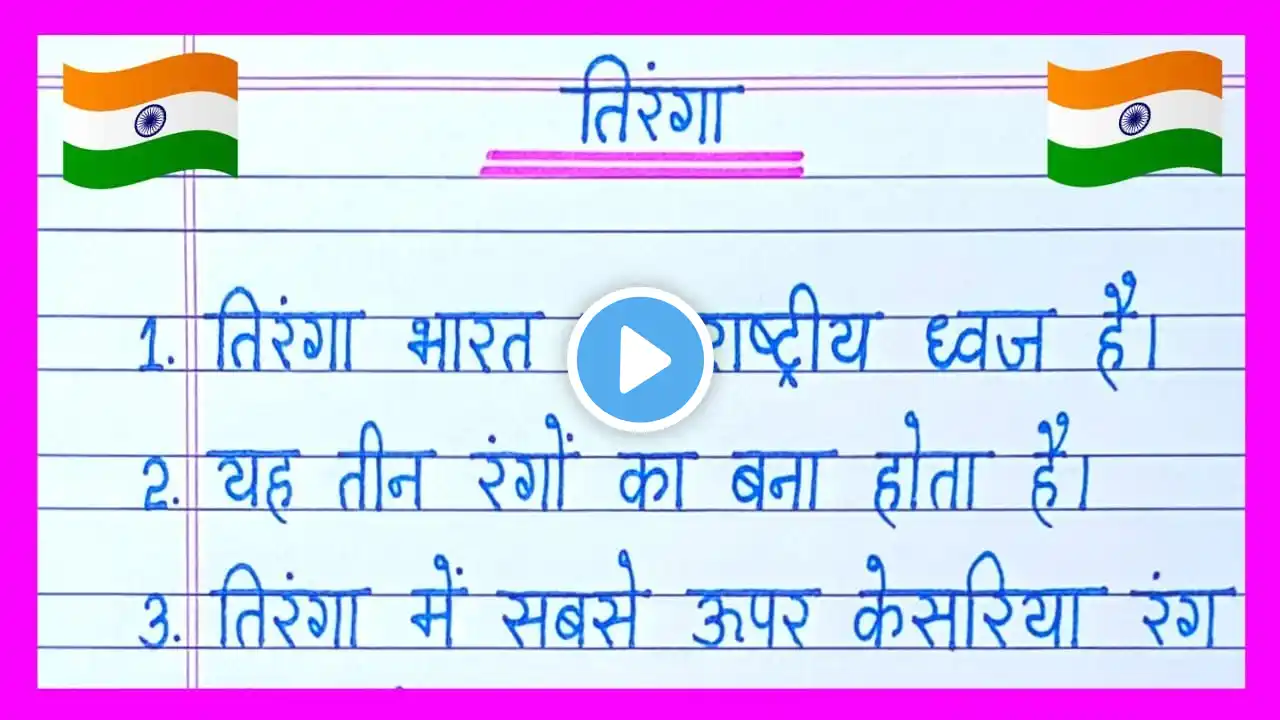 तिरंगा
1. तिरंगा भारत राष्ट्रीय ध्वज है।
2. यह तीन रंगों का बना होता है।
3. तिरंगा में सबसे ऊपर केसरिया रंग